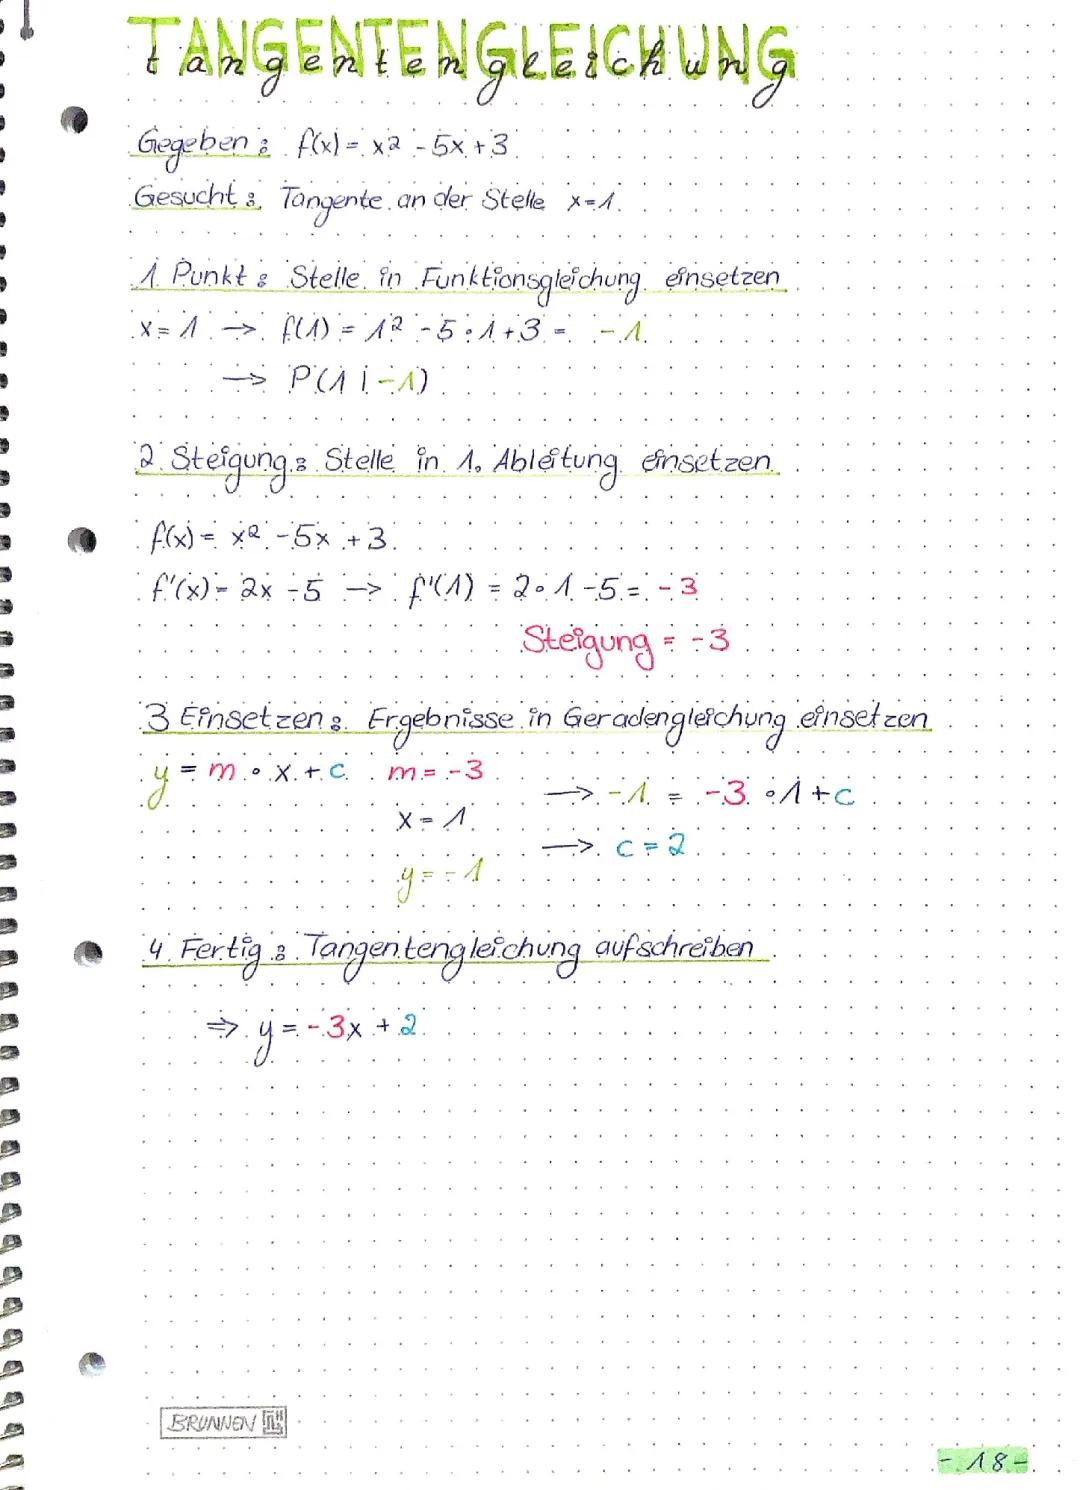 TANGENTENGLEICHUNG
tangentengleichung
Gegeben: f(x) = x² - 5x + 3
Gesucht: Tangente an der Stelle x=1
1. Punkt: Stelle in Funktionsgleichung einsetzen
x = 1 → f(1) = 1² - 5·1+3 = -1
→ P(1|-1)
2. Steigung: Stelle in 1. Ableitung einsetzen
f(x) = x² - 5x + 3
f'(x) = 2x - 5 → f'(1) = 2·1 - 5 = -3
Steigung = -3
3 Einsetzen: Ergebnisse in Geradengleichung einsetzen
y = m · x + c m = -3
→ -1 = -3 · 1 + c
x = 1
→ c = 2
y = -1
4. Fertig: Tangentengleichung aufschreiben
⇒ y = -3x + 2
BRUNNEN
- 18 -